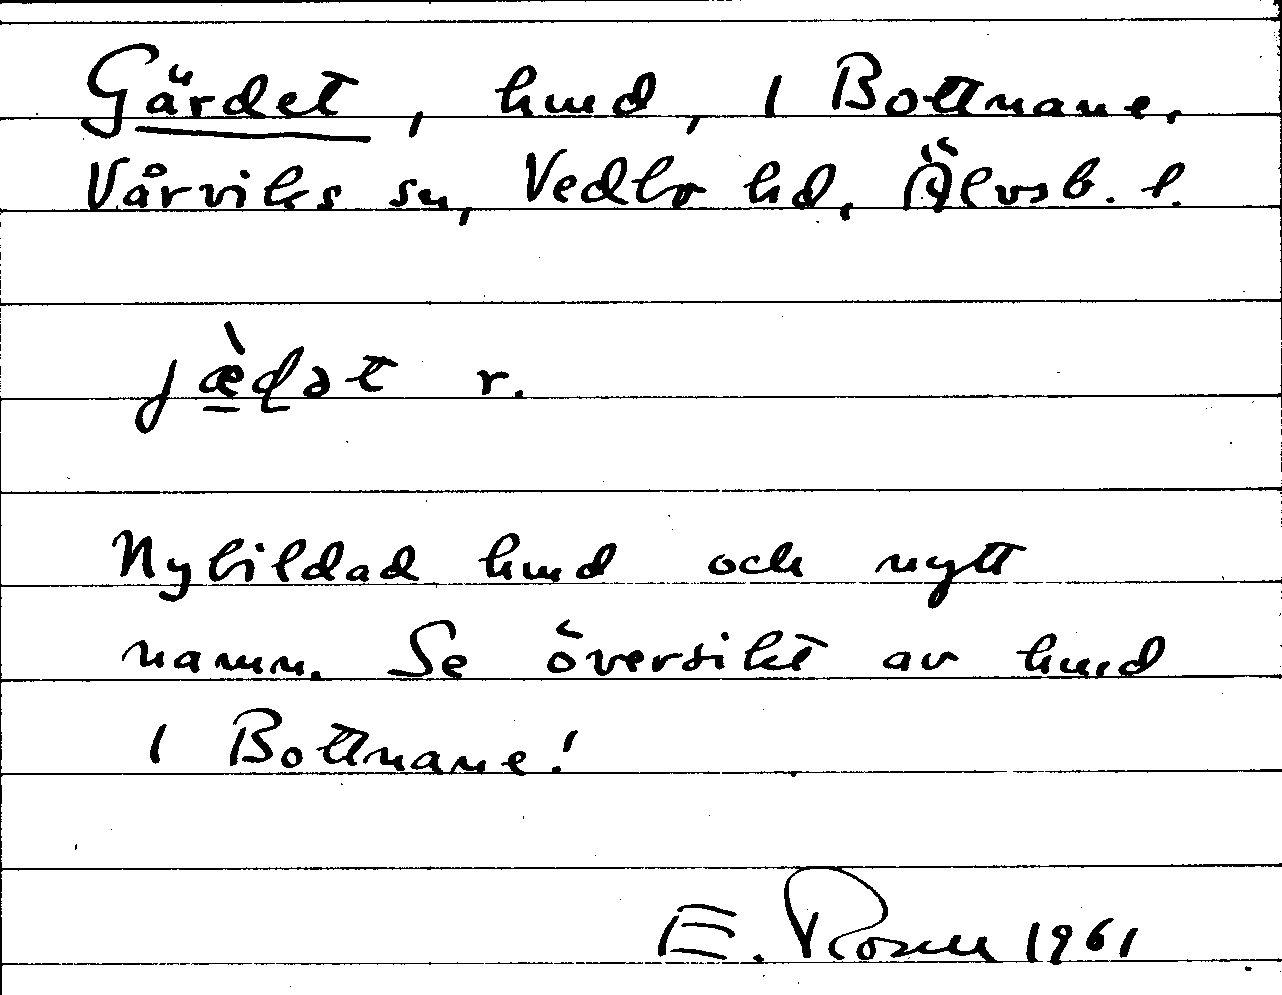 Gärdet, hmd, 1 Bottnane.
Vårviks sn, Vedbo hd, Älvsb. l.
jæ̀dət r.
Nybildad hmd och nytt
namn. Se översikt av hmd
1 Bottnane!
E. Rosell 1961